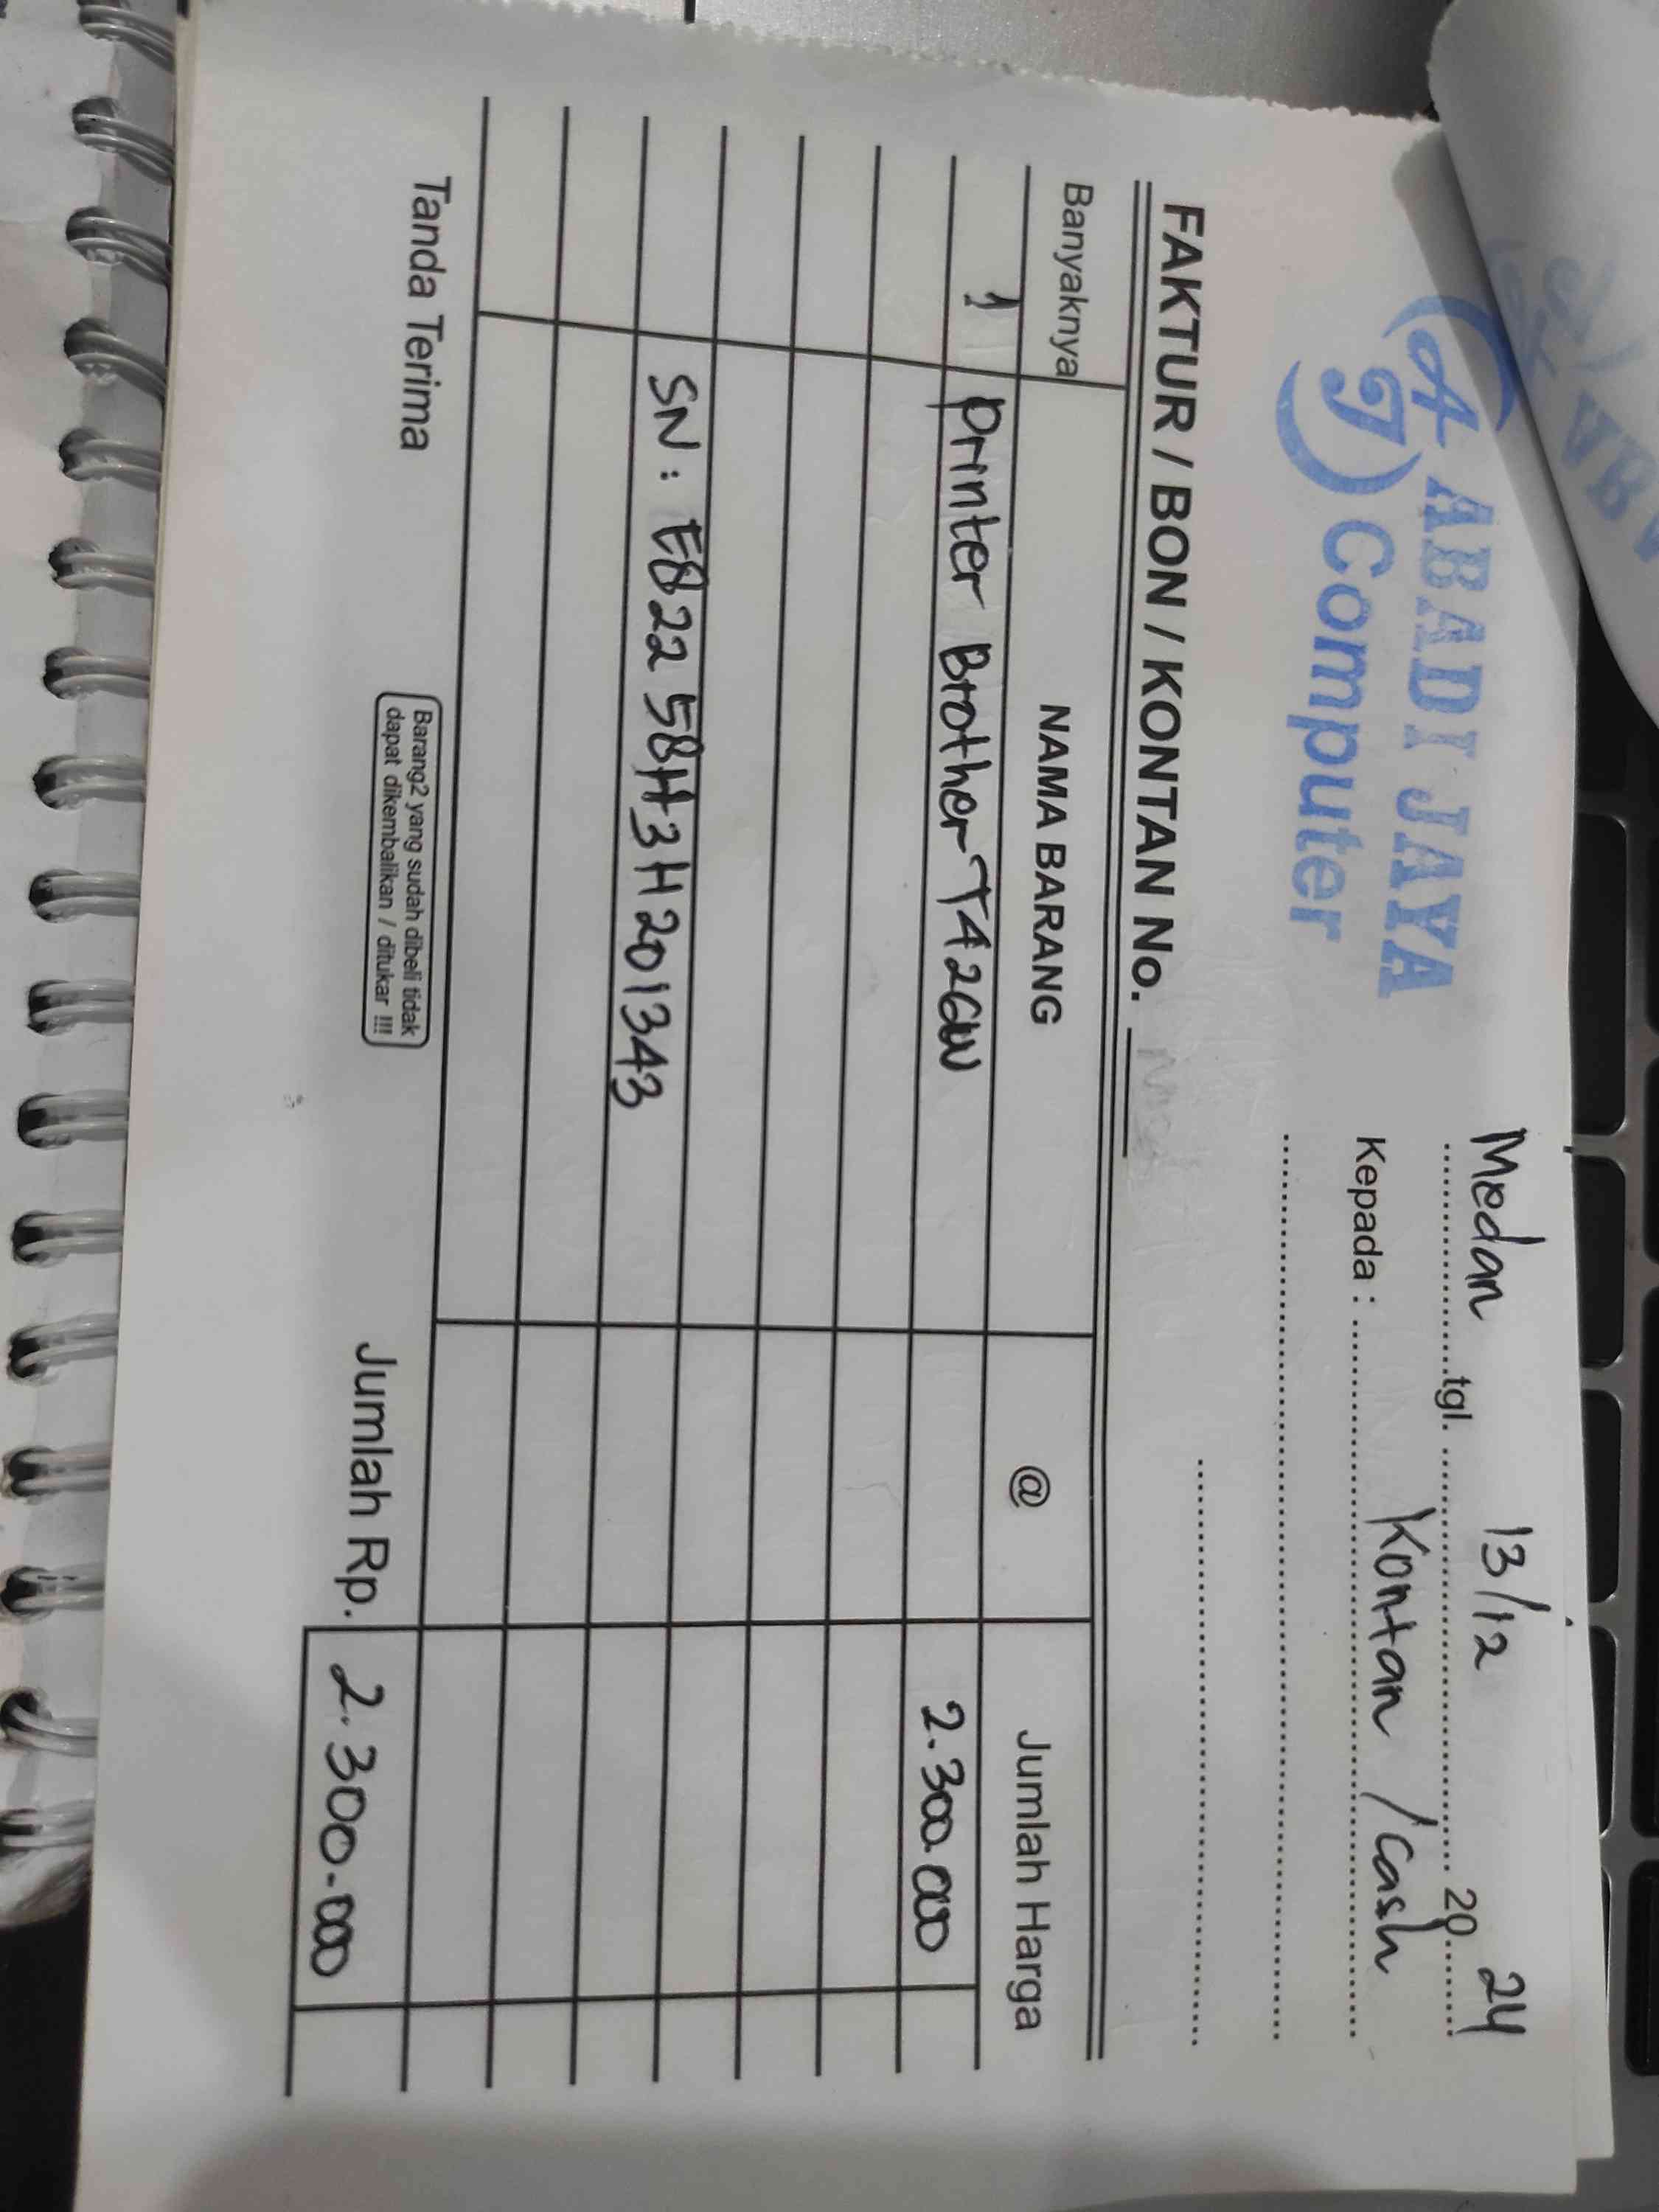 AJ ABADI JAYA
Computer
Medan tgl. 13/12 20 24
Kepada : Kontan / Cash
FAKTUR / BON / KONTAN No.
Banyaknya NAMA BARANG @ Jumlah Harga
1 Printer Brother T426W 2.300.000
SN : E82258H3H201343
Tanda Terima
Barang2 yang sudah dibeli tidak
dapat dikembalikan / ditukar !!!
Jumlah Rp. 2.300.000